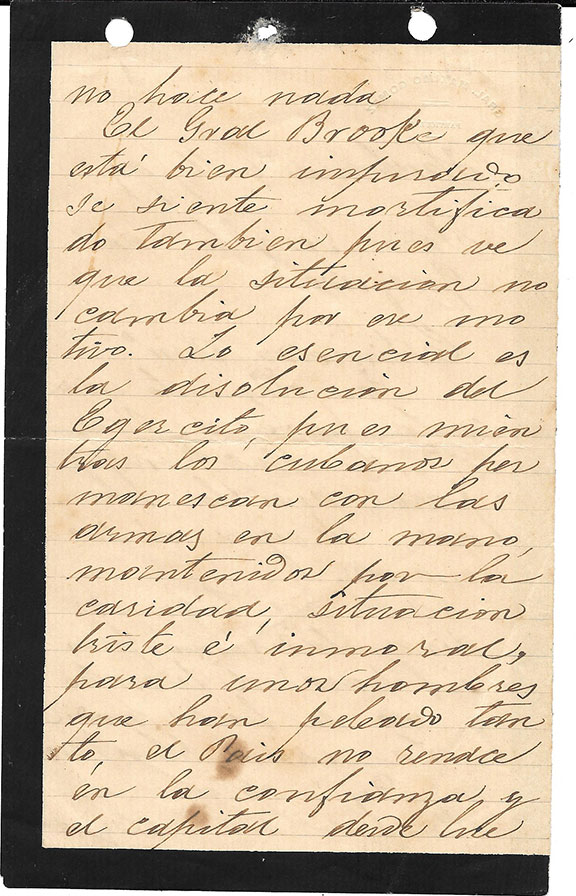 no hace nada
El Gral Brooke que
está bien impuesto
se siente mortifica
do tambien pues ve
que la situacion no
cambia por ese mo
tivo. Lo esencial es
la disolucion del
Egercito, pues mien
tras los cubanos per
manescan con las
armas en la mano,
mantenidos por la
caridad, situacion
triste é inmoral,
para unos hombres
que han peleado tan
to, el Pais no renace
én la confianza y
el capital desde lue